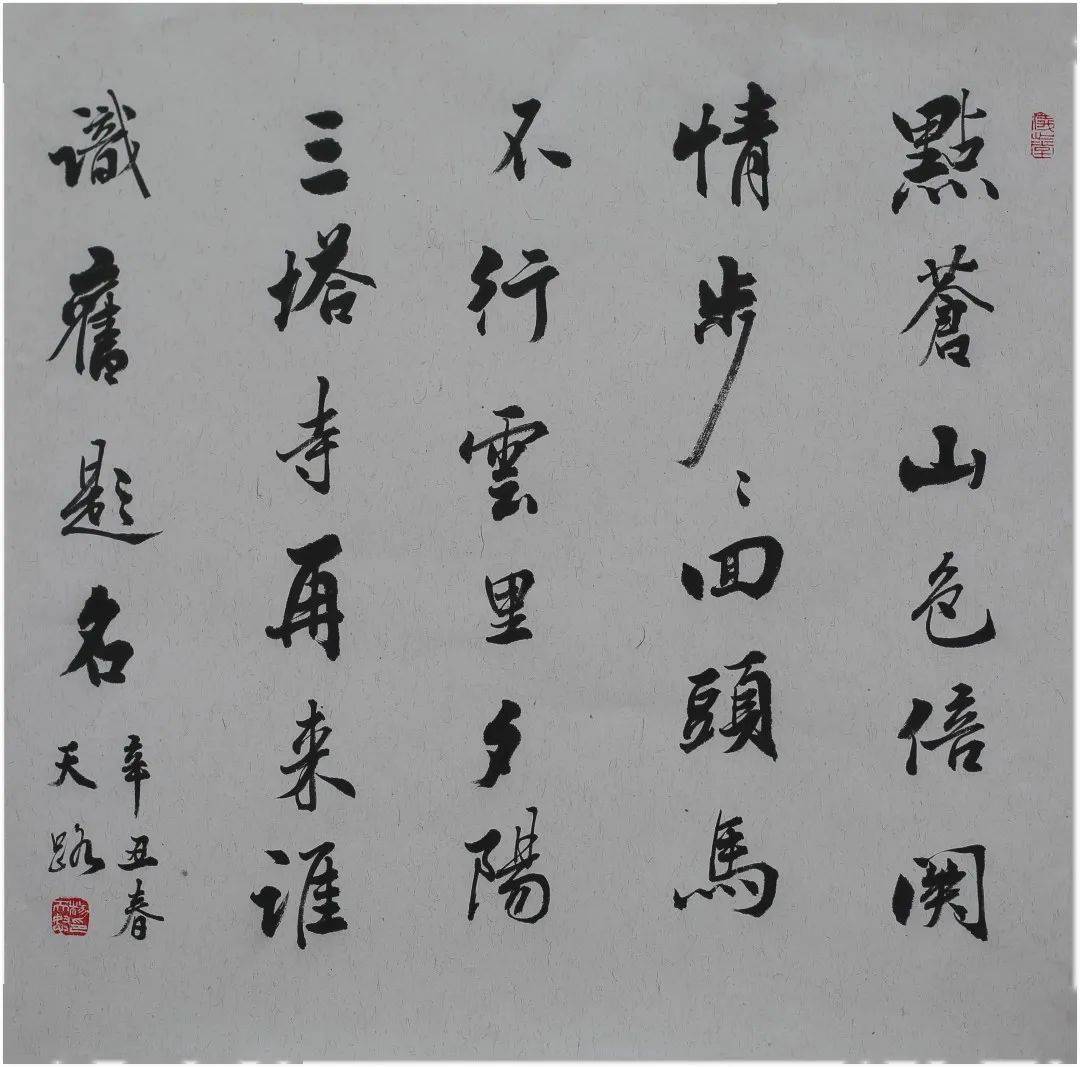 點蒼山色倍関
情步〻回頭馬
不行雲里夕陽
三塔寺再来誰
識舊題名
辛丑春
天路